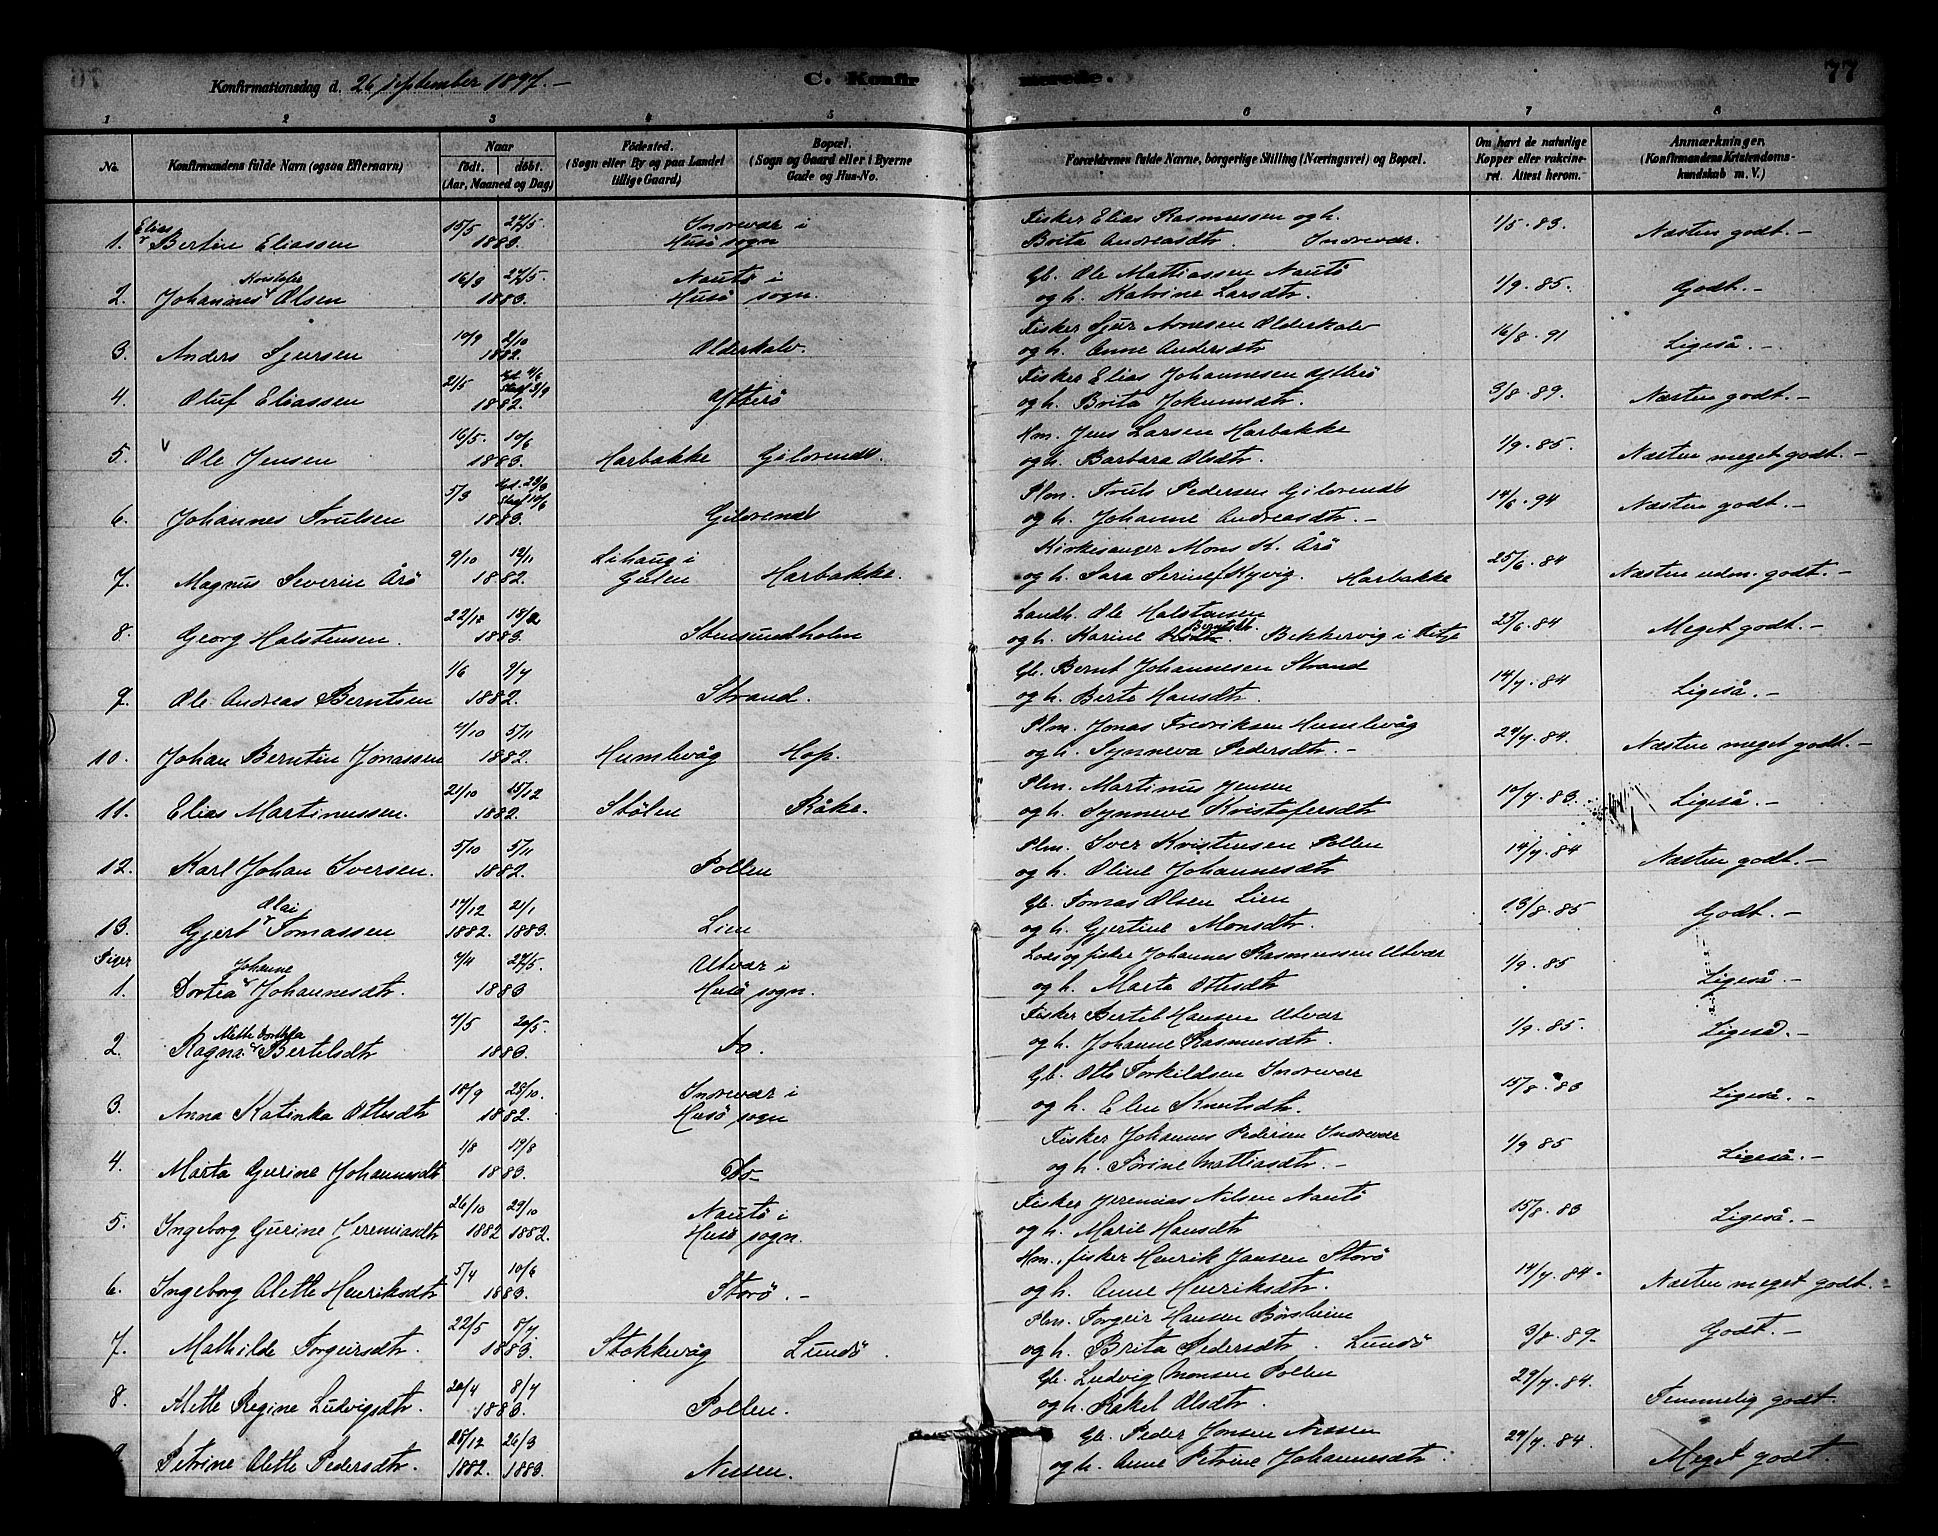 Konfirmationsdag d. 26 september 1897. –
C. Konfirmerede.
77
1 2 3 4 5 6 7 8
No. Konfirmandens fulde Navn (ogsaa Efternavn) Naar födt. döbt. (Aar, Maaned og Dag) Födested. (Sogn eller By og paa Landet tillige Gaard) Bopæl. (Sogn og Gaard eller i Byerne Gade og Hus-No. Forældrenes fulde Navne, borgerlige Stilling (Næringsvei) og Bopæl. Om havt de naturlige Kopper eller vakcineret. Attest herom. Anmærkninger. (Konfirmandens Kristendomskundskab m. V.)
Elias 15/5 27/5. Indrevær i Fisker Elias Rasmussen og h. 1/5. 83.
1. Bertin Eliassen 1883. Husö sogn Brita Andreasdtr. Indrevær. Næsten godt. –
Kristofer 16/3 27/5. Nautö i Gb. Ole Mattiassen Nautö 1/9. 85.
2. Johannes Olsen 1883. Husö sogn. og h. Katrine Larsdtr. Godt. –
10/9 2/10 Fisker Sjur Arnesen Olderkalv 16/8. 91
3. Anders Sjursen 1882. Olderkalv. og h. Anne Andersdtr Ligeså. –
2/5 Stadf 3/9 Fisker Elias Johannesen Ytterö 3/8. 89.
4. Oluf Eliassen 1882. Ytterö og h. Brita Johannsdtr. Næsten godt. –
16/5. 10/6 Hm. Jens Larsen Harbakke 1/9. 85.
5. Ole Jensen 1883. Harbakke Gilvrende. og h. Barbara Olsdtr. Næsten meget godt. –
5/3 Stadf 10/6 Plm. Truls Pedersen Gilvrende 14/6. 94
6. Johannes Trulsen 1883. Gilvrende og h. Johanne Andreasdtr. – Næsten godt. –
9/10 12/11 Lihaug i Kirkesanger Mons K. Årö 25/6. 84
7. Magnus Severin Årö 1882. Gulen Harbakke. og h. Sara Serine Kyvig. Harbakke Næsten udm. godt. –
22/12 18/2 Landh. Ole Halstensen 25/6. 84
8. Georg Halstensen. 1883. Stensundholm og h. Karine Berntsdt. Bekkervig i Fitje Meget godt. –
1/6 9/7 Gb. Bernt Johannesen Strand 14/7. 84
9. Ole Andreas Berntsen 1882. Strand. og h. Berte Hansdtr Ligeså. –
4/10 5/11 Plm. Jonas Fredriksen Humlevåg 29/7. 84.
10. Johan Berntin Jonassen 1882. Humlevåg Hop. og h. Synneva Pedersdtr. – Næsten meget godt. –
21/10 15/12 Plm. Martinus Jensen 10/7. 83.
11. Elias Martinussen. 1882. Stölen Råke. og h. Synneve Kristofersdtr Ligeså. –
5/10 5/11 Plm. Iver Kristensen Pollen 14/7. 84
12. Karl Johan Iversen. 1882. Pollen og h. Oline Johannesdtr Næsten godt. –
Olai 17/12 21/1 Gb. Tomas Olsen Lien 13/8. 85
13. Gjert Tomassen 1882. 1883. Lien og h. Gjertine Monsdtr. Godt. –
Piger Johanne 4/4 27/5. Utvær i Lods og fisker Johannes Rasmussen Utvær 1/9. 85
1. Dortea Johannesdtr. 1883 Husö sogn. og h. Marta Ottesdtr Ligeså. –
Mette Dorthea 4/5 20/5. Fisker Bertel Hansen Utvær 1/9. 85.
2. Ragna Bertelsdtr 1883. Do. og h. Johanne Rasmusdtr. Ligeså. –
18/9 28/10. Indrevær i Gb. Otte Torkildsen Indrevær 15/8. 83
3. Anna Katinka Ottesdtr 1882. Husö sogn og h. Elen Knutsdtr. Ligeså. –
1/8 19/8 Fisker Johannes Pedersen Indrevær 1/9 85
4. Marta Gurine Johannesdtr 1883. Do– og h. Sörine Mattiasdtr. – Ligeså. –
26/10 29/10 Nautö i Fisker Jeremias Nilsen Nautö 15/8. 83
5. Ingeborg Gurine Jeremiasdtr 1882 1882. Husö sogn. og h. Marie Hansdtr Ligeså. –
5/4 10/6 Hm., fisker Henrik Jansen Storö 14/7. 84.
6. Ingeborg Olette Henriksdtr 1883. Storö. – og h. Anne Henriksdtr. Næsten meget godt. –
22/5 8/7. Plm. Torgeir Hansen Börsheim 3/8. 89.
7. Mathilde Torgeirsdtr. 1883. Stokkevåg Lundö. og h. Brita Pedersdtr. Lundö Godt. –
20/4 8/7 Gb. Ludvig Monsen Pollen 29/7. 84.
8. Mette Regine Ludvigsdtr. 1883. Pollen. og h. Rakel Olsdtr. Temmelig godt.
28/12 26/3 Gb. Peder Jonsen Nessen 29/7. 84.
9 Petrine Olette Pedersdtr. 1882. 1883. Nessen. og h. Anne Petrine Johannesdtr. Meget godt.